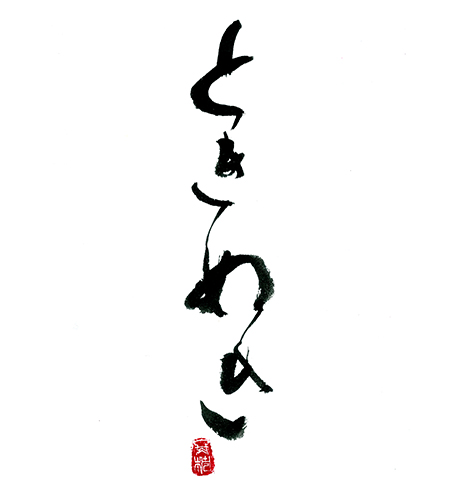 ときめき